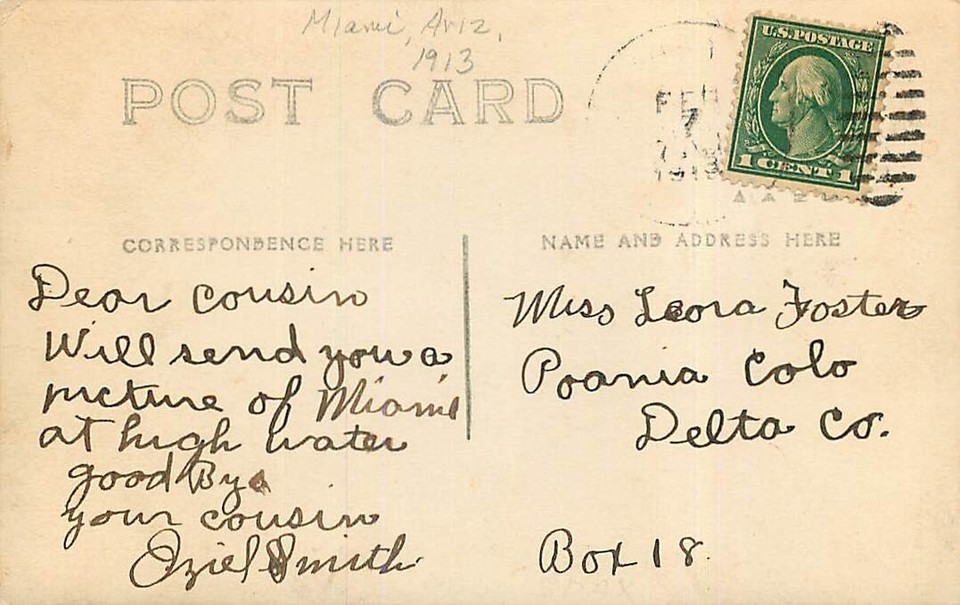 Miami, Ariz,
1913
POST CARD
FEB
7
1913
U.S. POSTAGE
1 CENT 1
CORRESPONDENCE HERE
NAME AND ADDRESS HERE
Dear cousin
Will send you a
picture of Miami
at high water
good Bye
your cousin
Smith
Miss Leora Foster
Poania Colo
Delta Co.
Box 18.